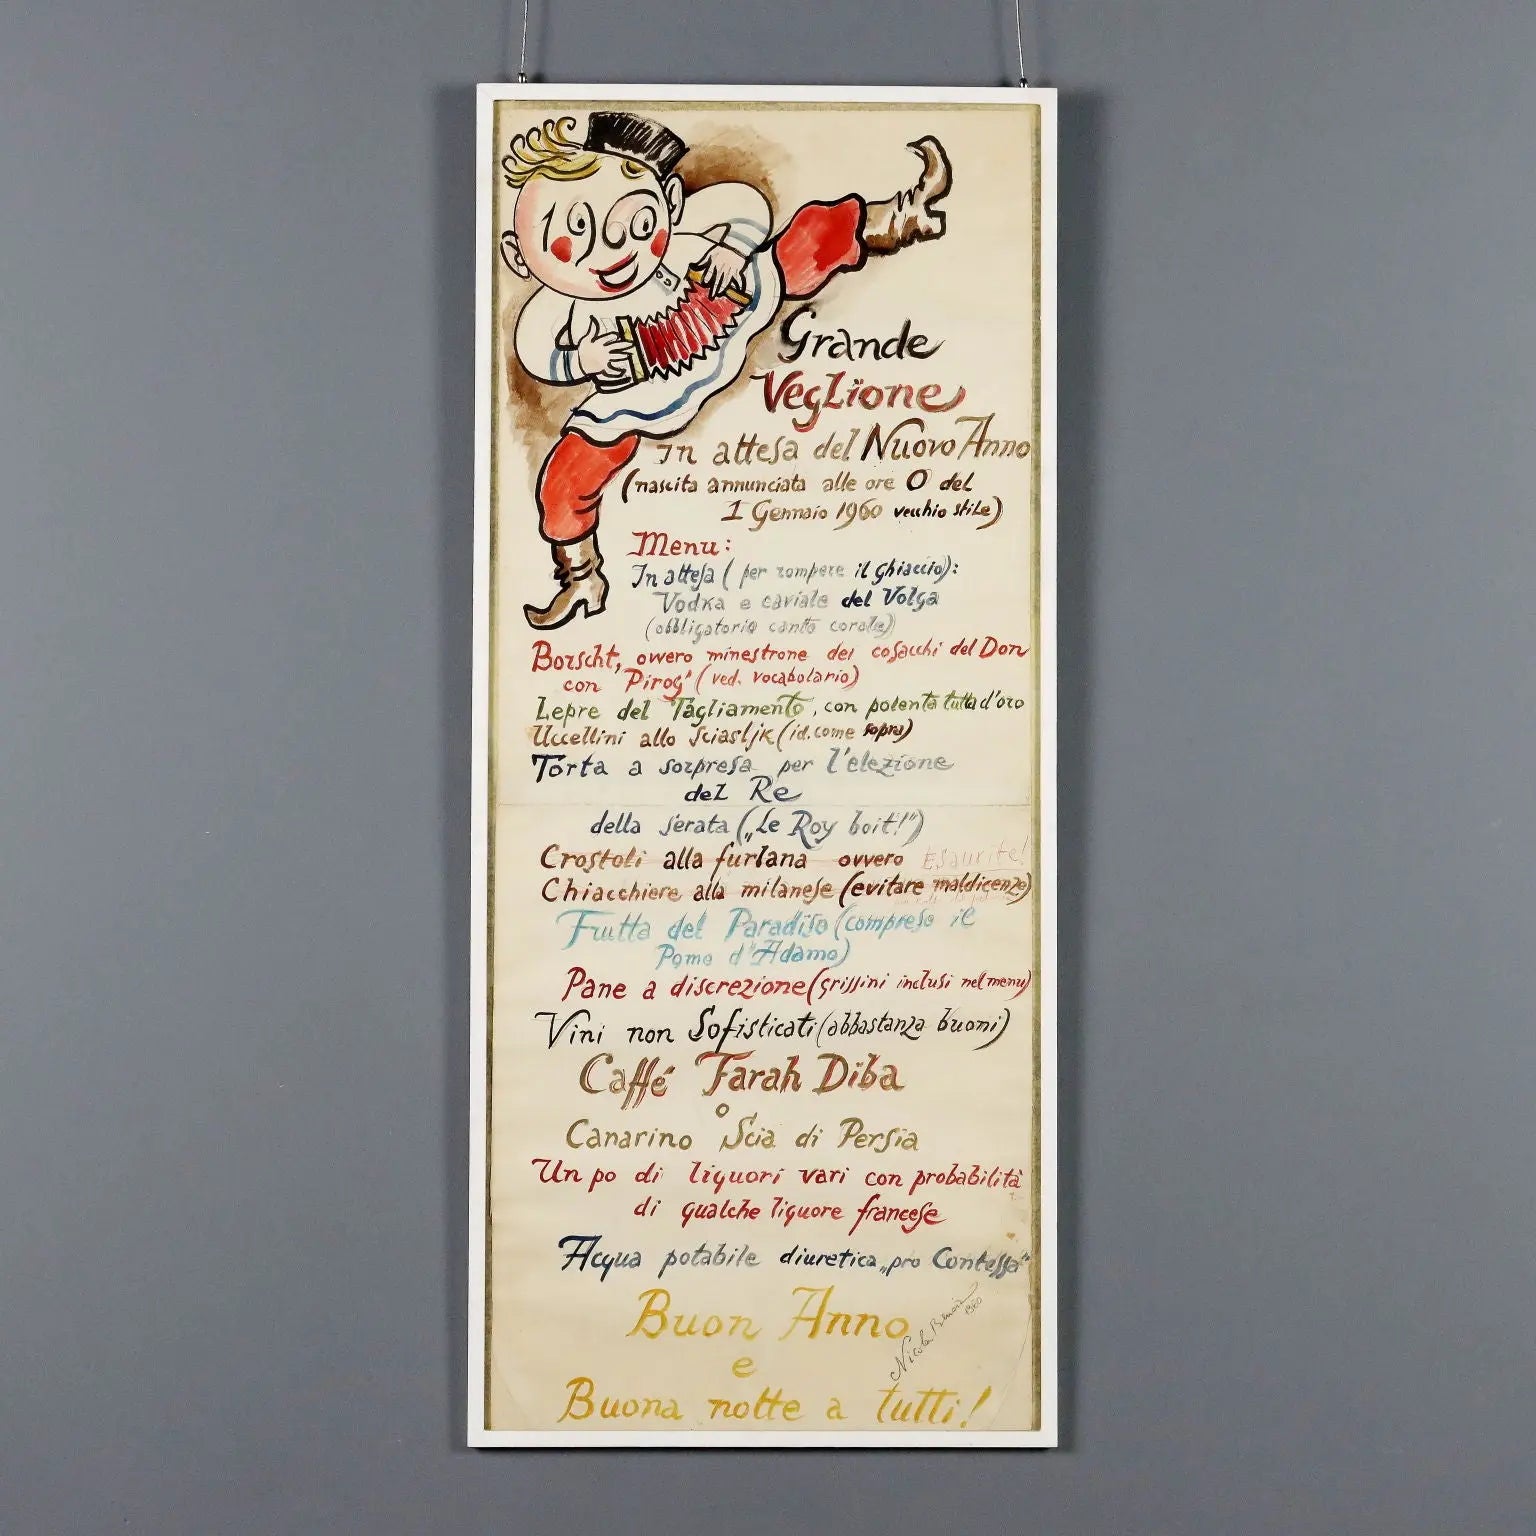 1960
Grande
Veglione
In attesa del Nuovo Anno
(nascita annunciata alle ore 0 del
1 Gennaio 1960 vecchio stile)
Menu:
In attesa (per rompere il ghiaccio):
Vodka e caviale del Volga
(obbligatorio canto corale)
Borscht, ovvero minestrone dei cosacchi del Don
con Pirog' (ved. vocabolario)
Lepre del Tagliamento, con polenta tutta d'oro
Uccellini allo sciasljk (id. come sopra)
Torta a sorpresa per l'elezione
del Re
della serata („Le Roy boit!")
Crostoli alla furlana ovvero Esaurite!
Chiacchiere alla milanese (evitare maldicenze)
Frutta del Paradiso (compreso il
Pomo d'Adamo)
Pane a discrezione (grissini inclusi nel menu)
Vini non Sofisticati (abbastanza buoni)
Caffé Farah Diba
o
Canarino Scia di Persia
Un po di liquori vari con probabilità
di qualche liquore francese
Acqua potabile diuretica „pro Contessa"
Buon Anno
e
Buona notte a tutti!
Nicola Benois
1960